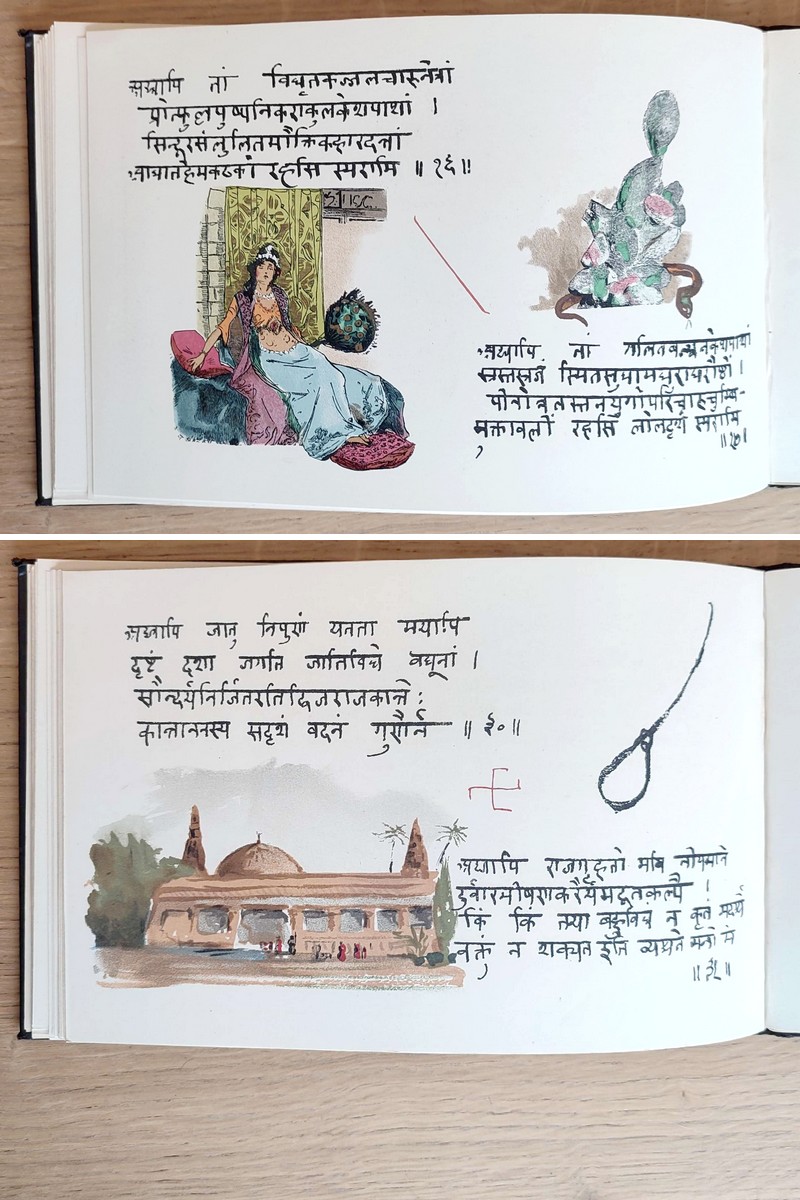 अद्यापि तां विधृतकज्जलचारुनेत्रां
प्रोत्फुल्लपुष्पनिकराकुलकेशपाशां ।
सिन्दूरसंलुलितमौक्तिकहारदन्तां
रहसि स्मरामि ॥ १६॥
अद्यापि तां गलितबन्धनकेशपाशां
स्रस्तस्रजं स्मितसुधामधुराधरौष्ठीं ।
पीनोन्नतस्तनयुगोपरिचारुचुम्बि-
मुक्तावलीं रहसि लोलदृशं स्मरामि
॥१७॥
अद्यापि जातु निपुणं यतता मयापि
दृष्टं दृशा जगति जातिविधे वधूनां ।
सौन्दर्यनिर्जितरतिद्विजराजकान्तेः
कान्ताननस्य सदृशं वदनं गुणैर्न ॥ ३०॥
अद्यापि राजगृहतो मयि नीयमाने
दुर्वारभीषणकरैर्यमदूतकल्पै ।
किं किं तया बहुविधं न कृतं मदर्थे
वक्तुं न शक्यत इति व्यथते मनो मे
॥३१॥